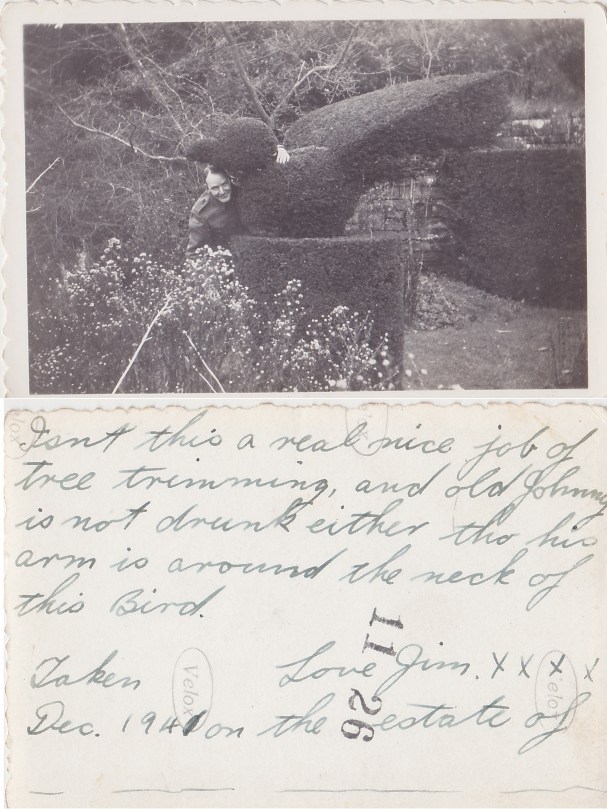 Isn't this a real nice job of
tree trimming, and old Johnny
is not drunk either tho his
arm is around the neck of
this Bird.
Love Jim. X X X X
Taken
Dec. 1941 on the estate of
11 26
Velox
Velox
Velox
Velox